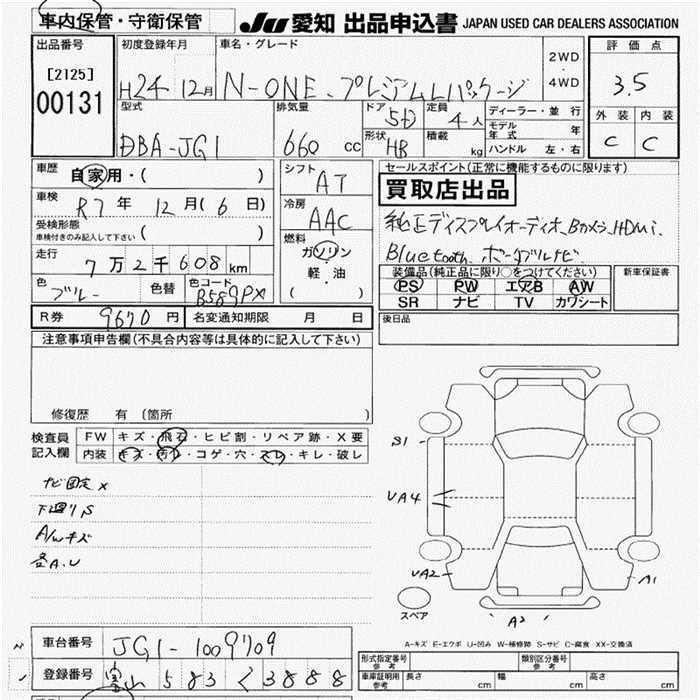 車内保管・守衛保管
JU 愛知 出品申込書 JAPAN USED CAR DEALERS ASSOCIATION
出品番号
[2125]
00131
初度登録年月
H24 12月
車名・グレード
N-ONE、プレミアムLパッケージ
2WD
・
4WD
評価点
3.5
外装 内装
C C
型式
DBA-JG1
排気量
660 cc
ドア
5D
定員
4人
形状
HB
積載
kg
ディーラー・並行
モデル年式 年
ハンドル 左・右
車歴
自家用・( )
車検
R7年 12月(6日)
受検形態
車検付きのみ記入して下さい ( )
走行
7万2千608km
色
ブルー
色替
色コード
B589PX
シフト
AT
冷房
AAC
燃料
ガソリン
軽・油
( )
セールスポイント(正常に機能するものに限ります)
買取店出品
純正ディスプレイオーディオ、Bカメラ、HDMi、
Bluetooth、ポータブルナビ
装備品(純正品に限り○をつけてください)
PS PW エアB AW
SR ナビ TV カワシート
新車保証書
後日品
R券 9670円 名変通知期限 月 日
注意事項申告欄(不具合内容等は具体的に記入して下さい)
修復歴 有 (箇所 )
検査員
記入欄
FW キズ・飛石・ヒビ割・リペア跡・X要
内装 キズ・汚レ・コゲ・穴・スレ・キレ・破レ
ナビ固定X
下廻りS
A/Wキズ
各A.U
B1
UA4
UA2
A1
A2
スペア
A-キズ E-エクボ U-凹み W-補修跡 S-サビ C-腐食 XX-交換済
車台番号 JG1-1009709
登録番号 富山 583 く 3888
形式指定番号
参考
類別区分番号
参考
車庫証明用
参考
長さ cm 幅 cm 高さ cm